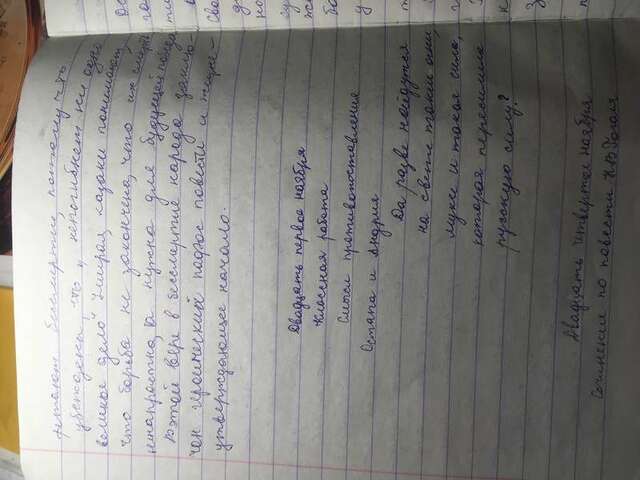 делают бессмертны, потому что
убеждены, что „непогибнет ни одно
великое дело". Умирая, казаки понимают,
что борьба не закончена, что их смерть
ненапрастна, а нужна для будущей
В этой вере в бессмертие народа
героический пафос повести и
утверждающее начало.
Двадцать первое ноября
Классная работа
Смысл противопоставления
Остапа и Андрия
Да разве найдутся
на свете такие огни,
муки и такая сила,
которая пересилила
русскую силу?
Двадцать четвертое ноября
Сочинение по повести Н.В.Гоголя